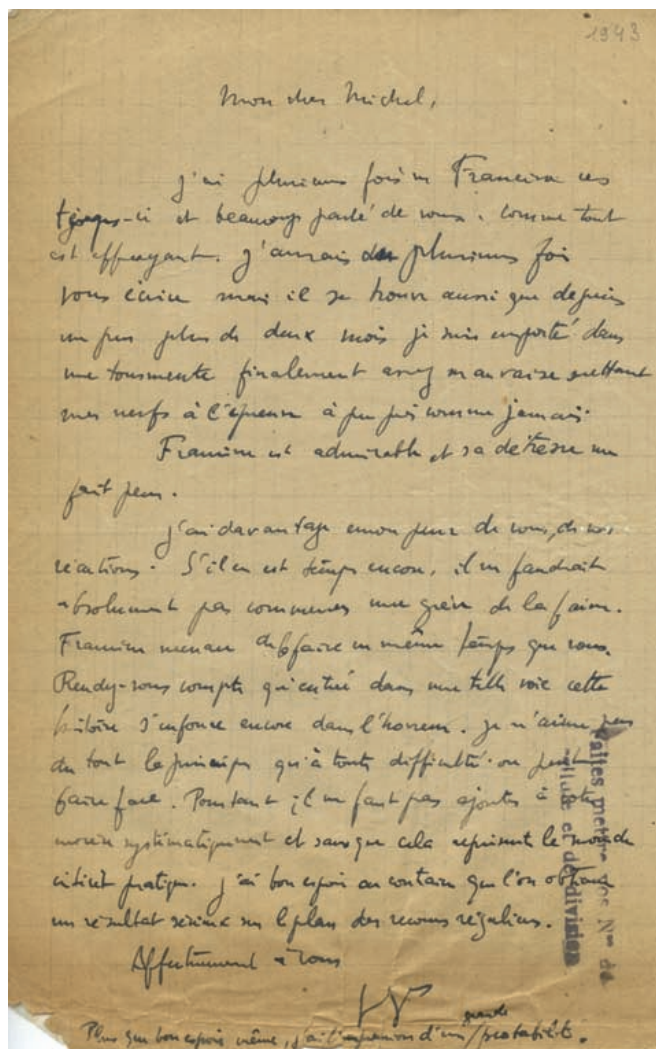 1943
Mon cher Michel,
J'ai plusieurs fois vu Francine ces
jours-ci et beaucoup parlé de vous. Comme tout
est effrayant. J'aurais dû plusieurs fois
vous écrire mais il se trouve aussi que depuis
un peu plus de deux mois je suis emporté dans
une tourmente finalement assez mauvaise mettant
mes nerfs à l'épreuve à peu près comme jamais.
Francine est admirable et sa détresse me
fait peur.
J'ai davantage encore peur de vous, de vos
réactions. S'il en est temps encore, il ne faudrait
absolument pas commencer une grève de la faim.
Francine menace de la faire en même temps que vous.
Rendez-vous compte qu'entrée dans une telle voie cette
histoire s'enfonce encore dans l'horreur. Je n'aime pas
du tout le principe qu'à toute difficulté on peut
faire face. Pourtant il ne faut pas ajouter à cette
systématiquement et sans que cela représente le moindre
intérêt pratique. J'ai bon espoir au contraire que l'on obtienne
un résultat sérieux sur le plan des recours réguliers.
Affectueusement à vous
Plus que bon espoir même, j'ai l'impression d'une grande probabilité.
Faites mettre vos Nos de
cellule et de division